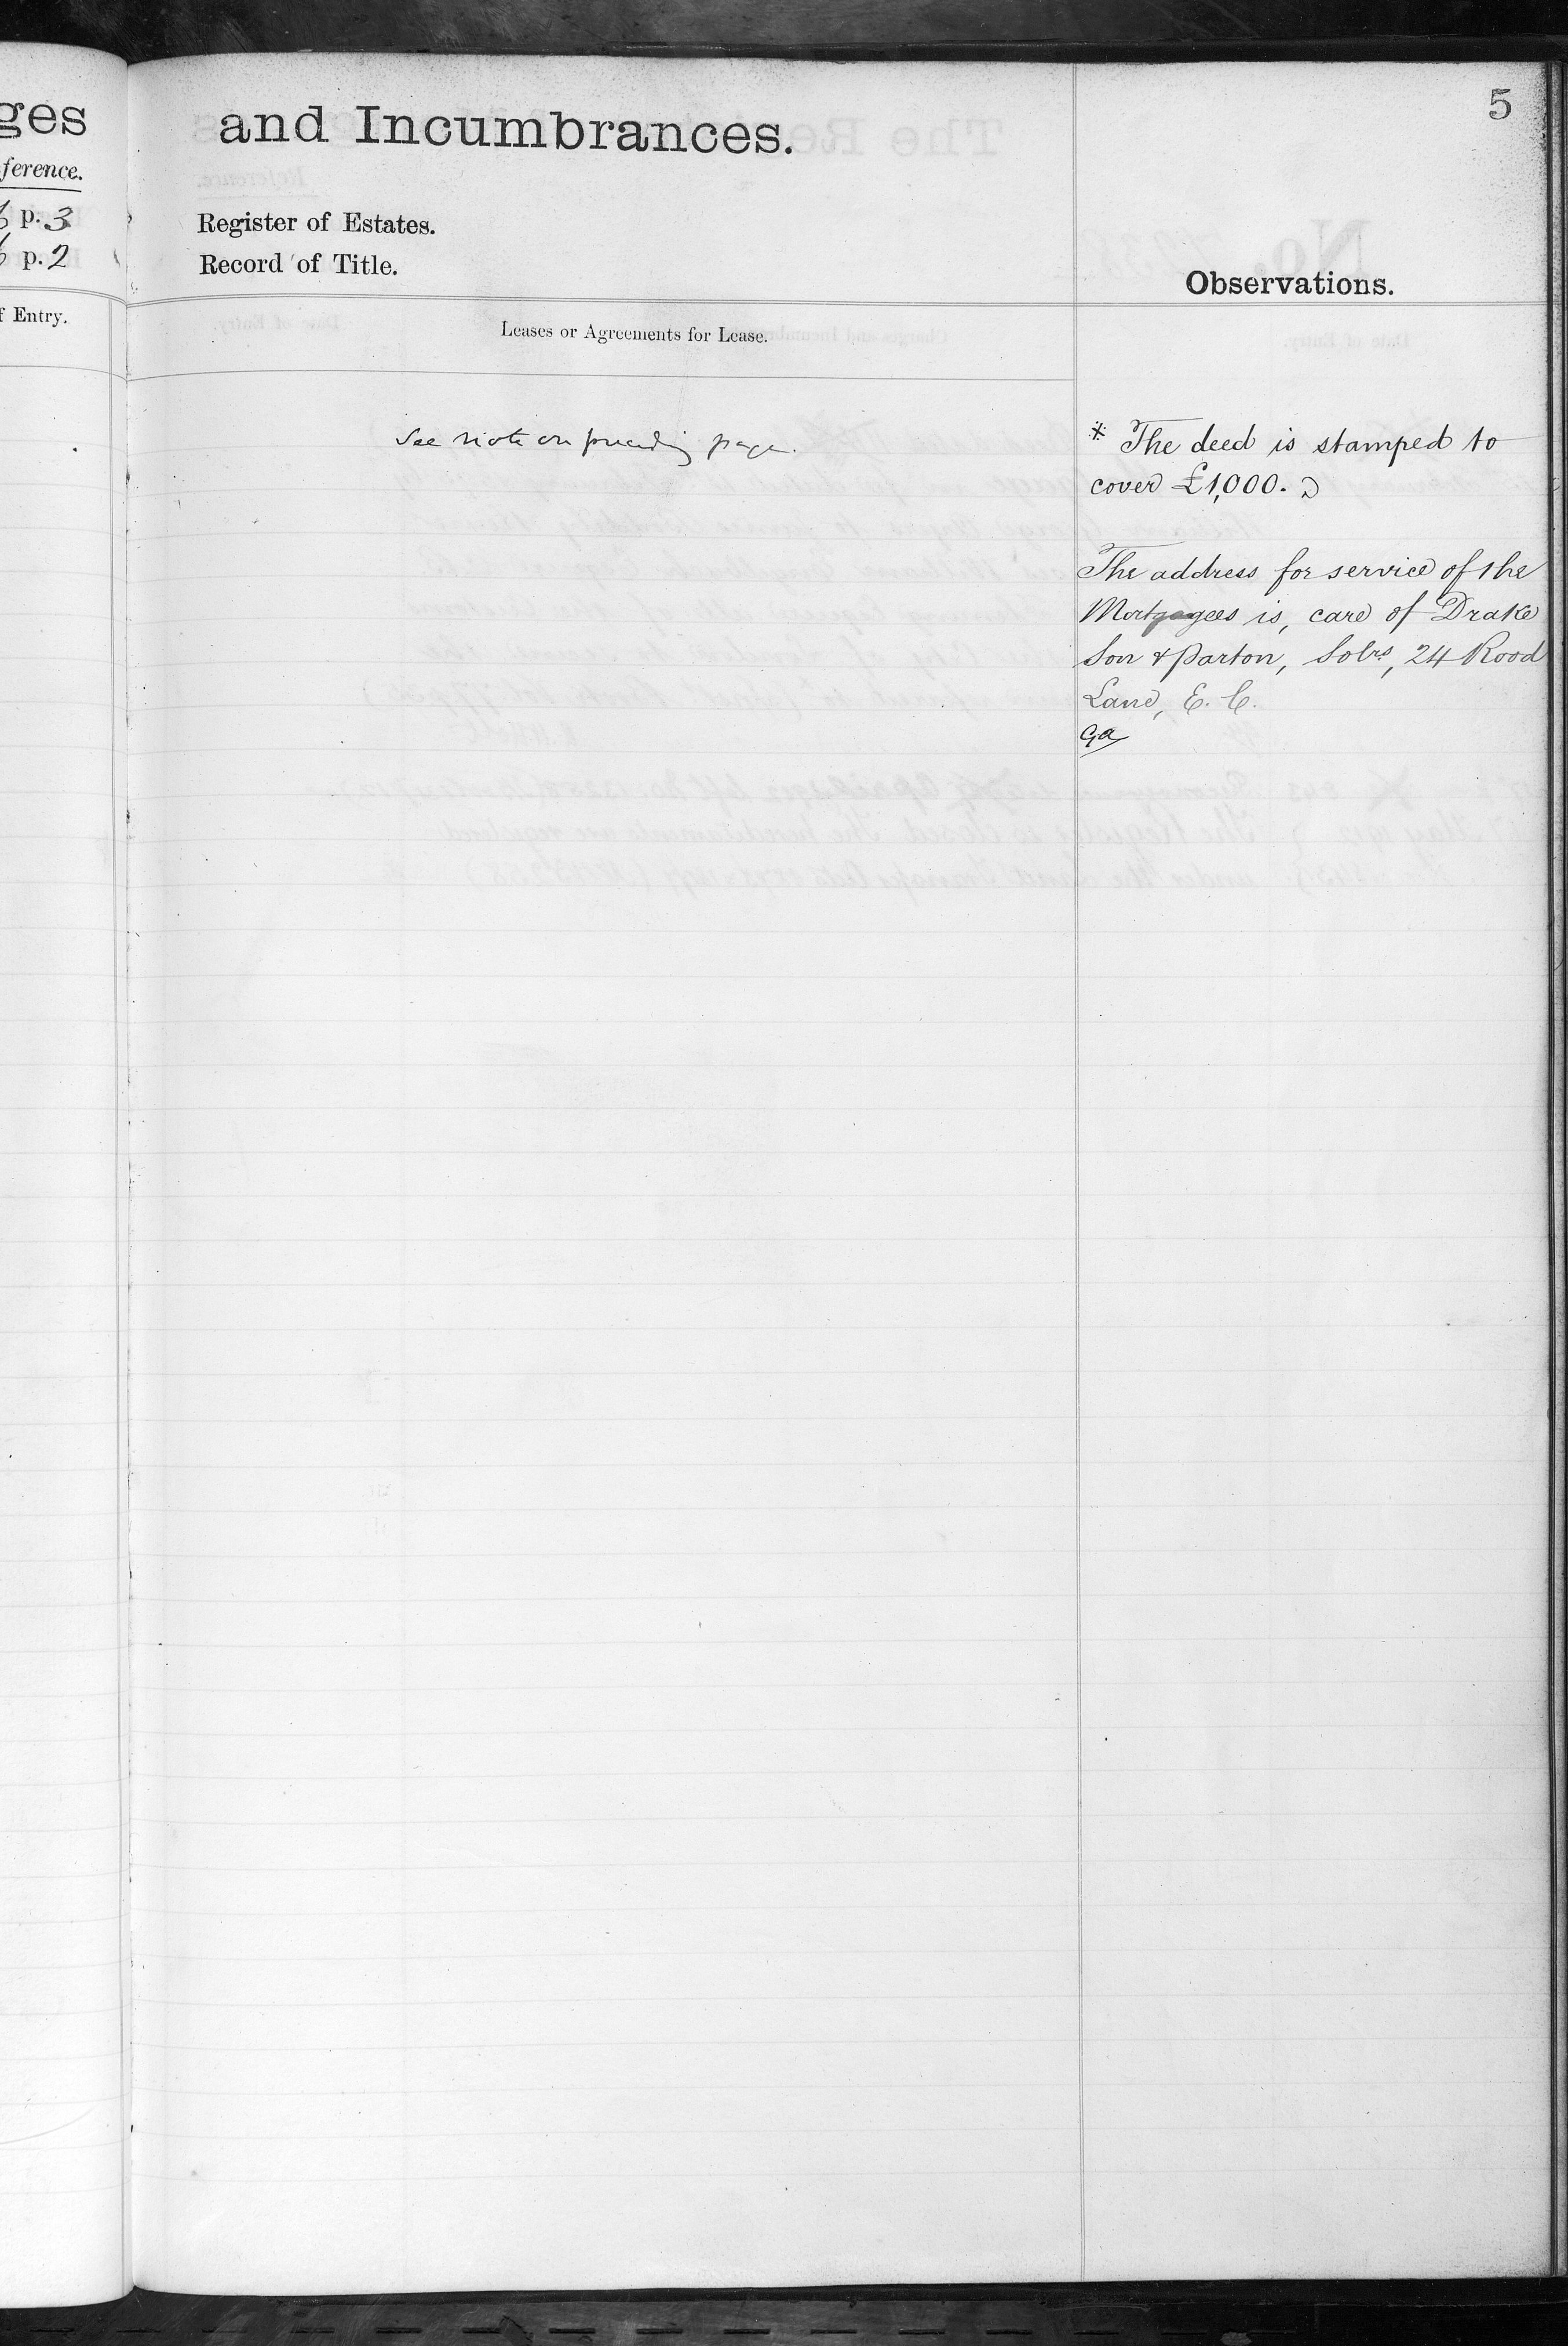 ges
ference.
p. 3
p. 2
f Entry.
5
and Incumbrances.
Register of Estates.
Record of Title.
Observations.
Leases or Agreements for Lease.
See note on preceding page.
* The deed is stamped to
cover £1,000.
The address for service of the
Mortgagees is, care of Drake
Son & Parton, Solrs, 24 Rood
Lane, E. C.
Ga